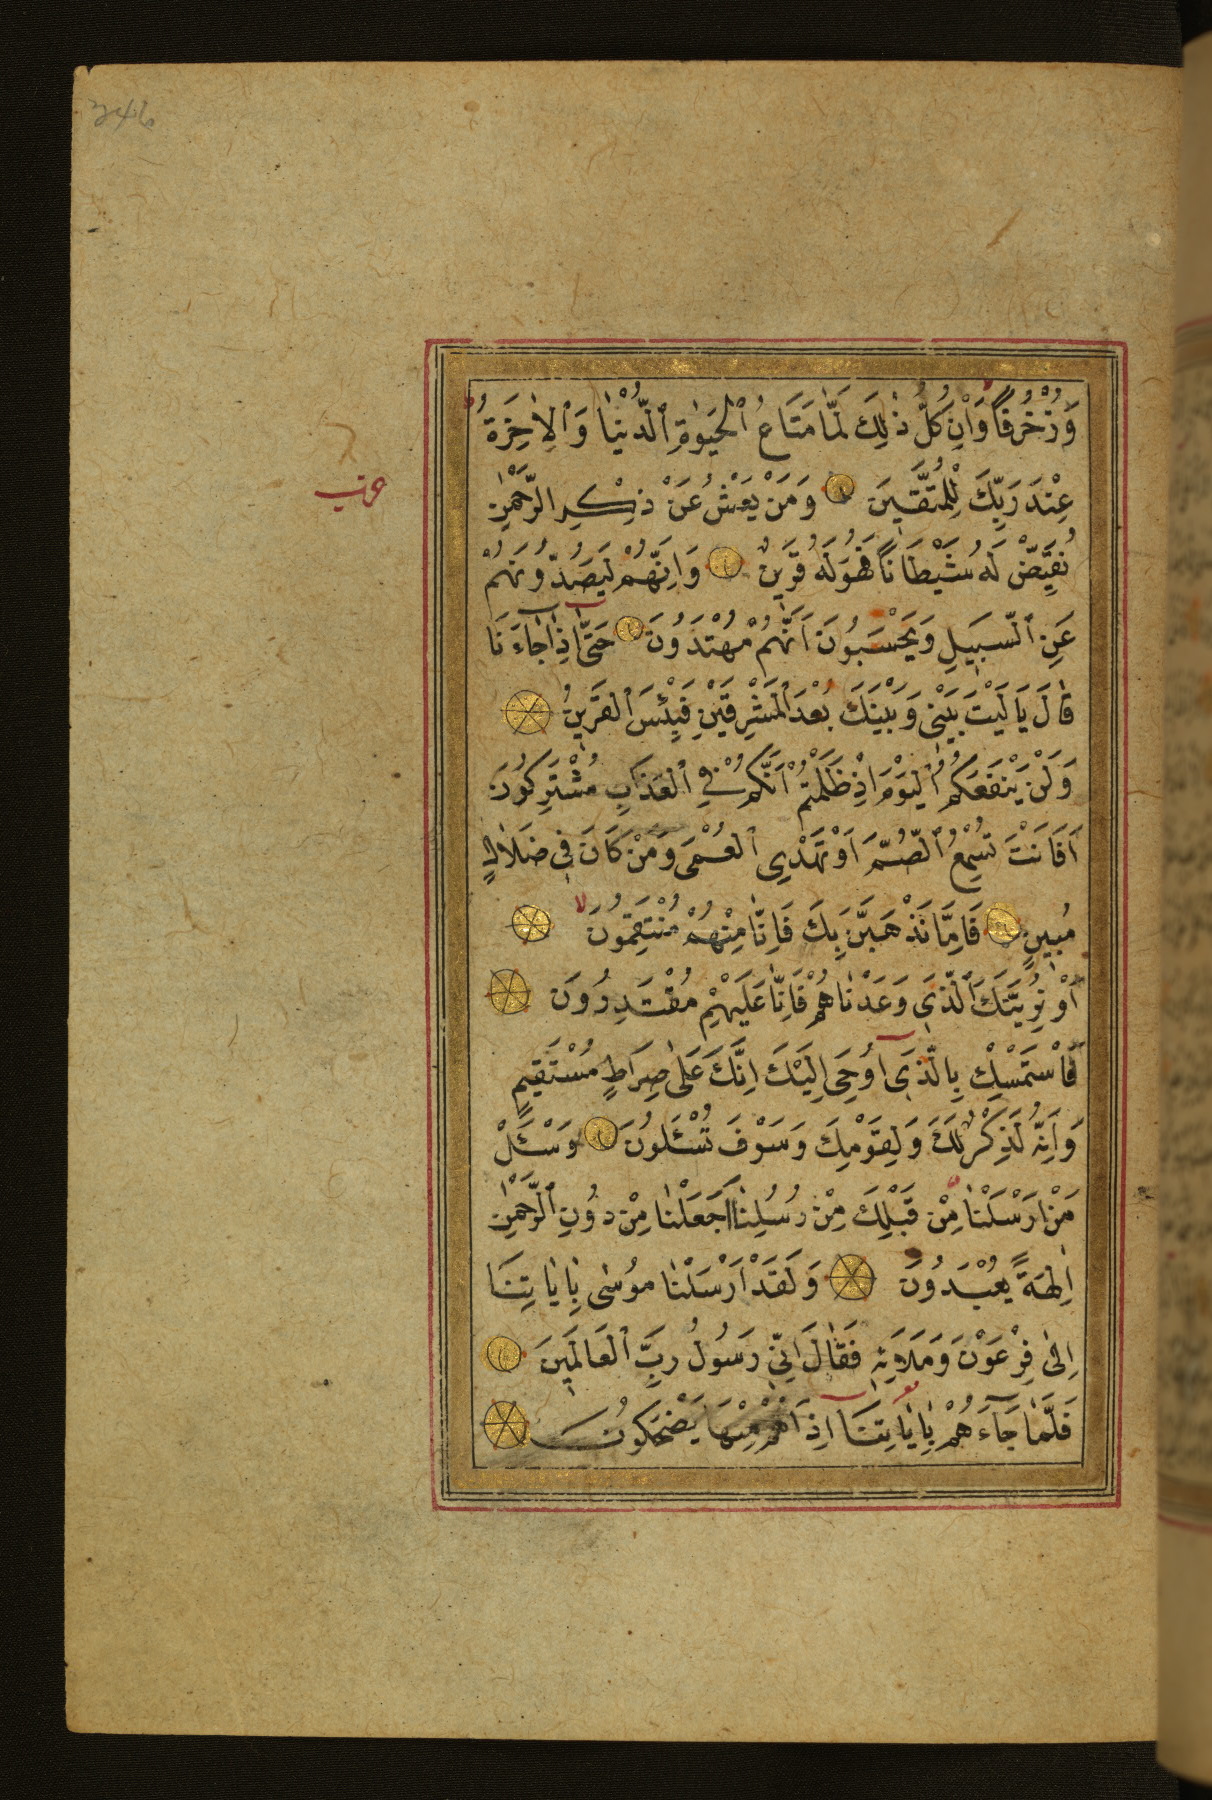 246
وَزُخْرُفًا وَاِنْ كُلُّ ذٰلِكَ لَمَّا مَتَاعُ ٱلْحَيٰوةِ ٱلدُّنْيَا وَٱلْاٰخِرَةُ
عِنْدَ رَبِّكَ لِلْمُتَّقٖينَ وَمَنْ يَعْشُ عَنْ ذِكْرِ الرَّحْمٰنِ
نُقَيِّضْ لَهُ شَيْطَانًا فَهُوَ لَهُ قَرٖينٌ وَاِنَّهُمْ لَيَصُدُّونَهُمْ
عَنِ ٱلسَّبٖيلِ وَيَحْسَبُونَ اَنَّهُمْ مُهْتَدُونَ حَتّٰى اِذَا جَاءَنَا
قَالَ يَا لَيْتَ بَيْنٖى وَبَيْنَكَ بُعْدَ ٱلْمَشْرِقَيْنِ فَبِئْسَ ٱلْقَرٖينُ
وَلَنْ يَنْفَعَكُمُ ٱلْيَوْمَ اِذْ ظَلَمْتُمْ اَنَّكُمْ فِي ٱلْعَذَابِ مُشْتَرِكُونَ
اَفَاَنْتَ تُسْمِعُ ٱلصُّمَّ اَوْ تَهْدِى ٱلْعُمْىَ وَمَنْ كَانَ فٖى ضَلَالٍ
مُبٖينٍ فَاِمَّا نَذْهَبَنَّ بِكَ فَاِنَّا مِنْهُمْ مُنْتَقِمُونَ
اَوْ نُرِيَنَّكَ ٱلَّذٖى وَعَدْنَاهُمْ فَاِنَّا عَلَيْهِمْ مُقْتَدِرُونَ
فَاسْتَمْسِكْ بِالَّذٖى اُوحِىَ اِلَيْكَ اِنَّكَ عَلٰى صِرَاطٍ مُسْتَقٖيمٍ
وَاِنَّهُ لَذِكْرٌ لَكَ وَلِقَوْمِكَ وَسَوْفَ تُسْئَلُونَ وَسْئَلْ
مَنْ اَرْسَلْنَا مِنْ قَبْلِكَ مِنْ رُسُلِنَا اَجَعَلْنَا مِنْ دُونِ ٱلرَّحْمٰنِ
اٰلِهَةً يُعْبَدُونَ وَلَقَدْ اَرْسَلْنَا مُوسٰى بِاٰيَاتِنَا
اِلٰى فِرْعَوْنَ وَمَلَائِهٖ فَقَالَ اِنّٖى رَسُولُ رَبِّ ٱلْعَالَمٖينَ
فَلَمَّا جَاءَهُمْ بِاٰيَاتِنَا اِذَا هُمْ مِنْهَا يَضْحَكُونَ